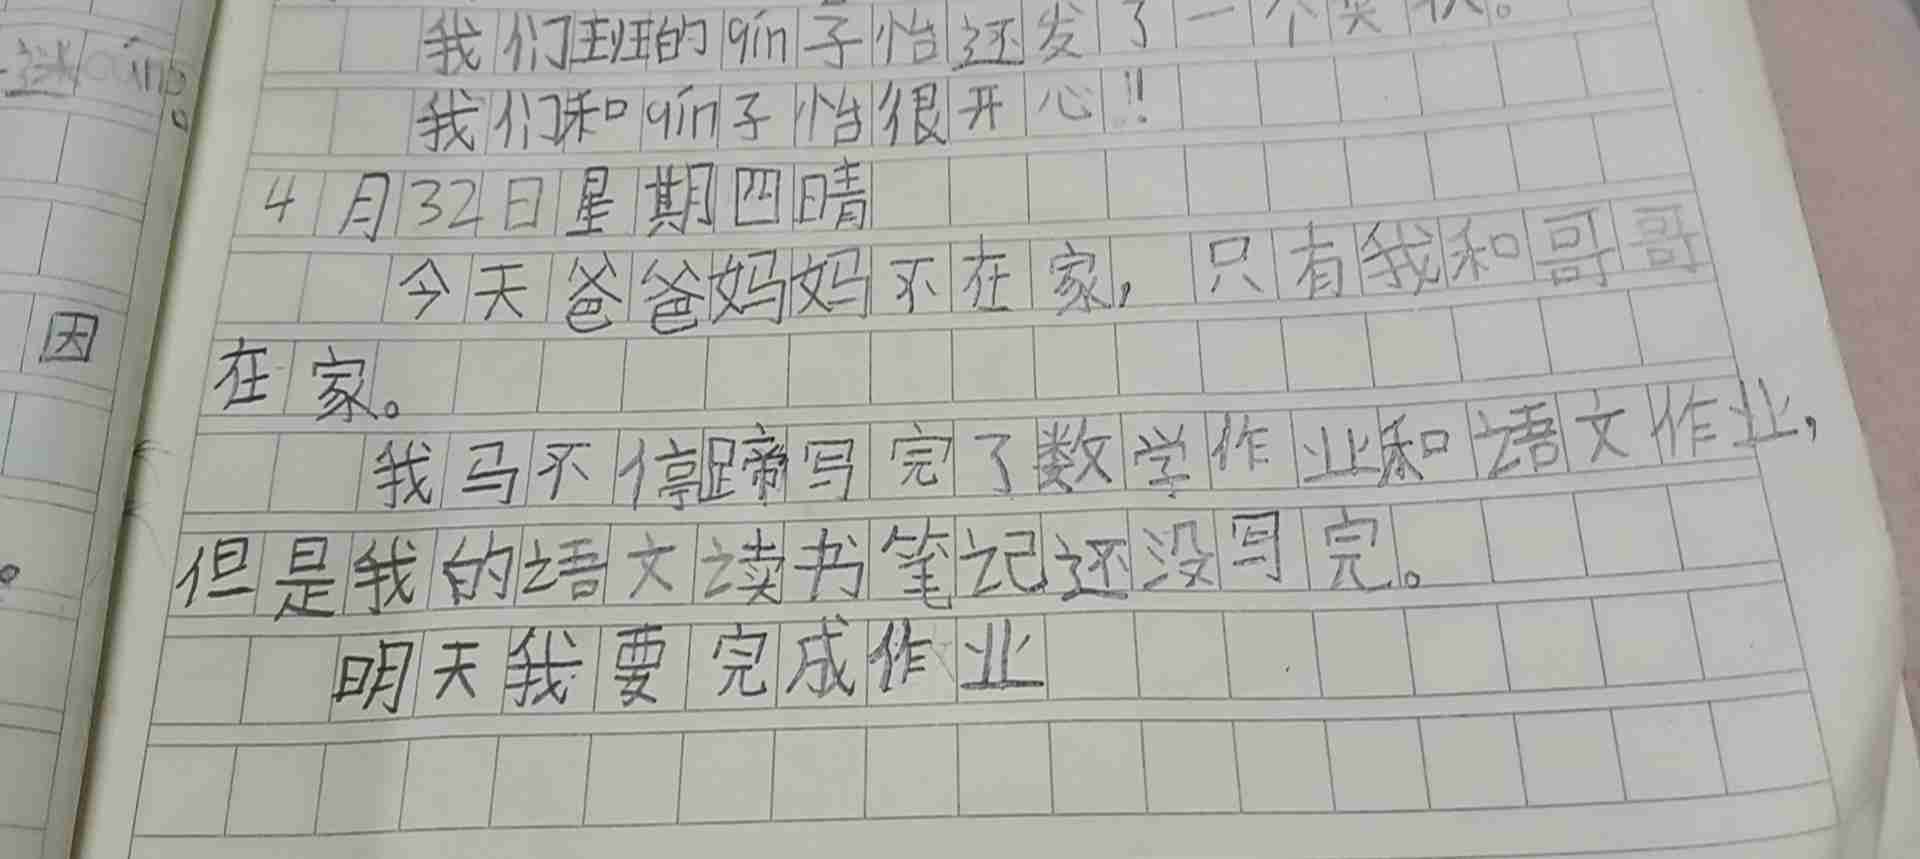 迷
因
我们班的qín子怡还发了一个奖状。
我们和qín子怡很开心!!
4月32日星期四晴
今天爸爸妈妈不在家，只有我和哥哥
在家。
我马不停蹄写完了数学作业和语文作业，
但是我的语文读书笔记还没写完。
明天我要完成作业